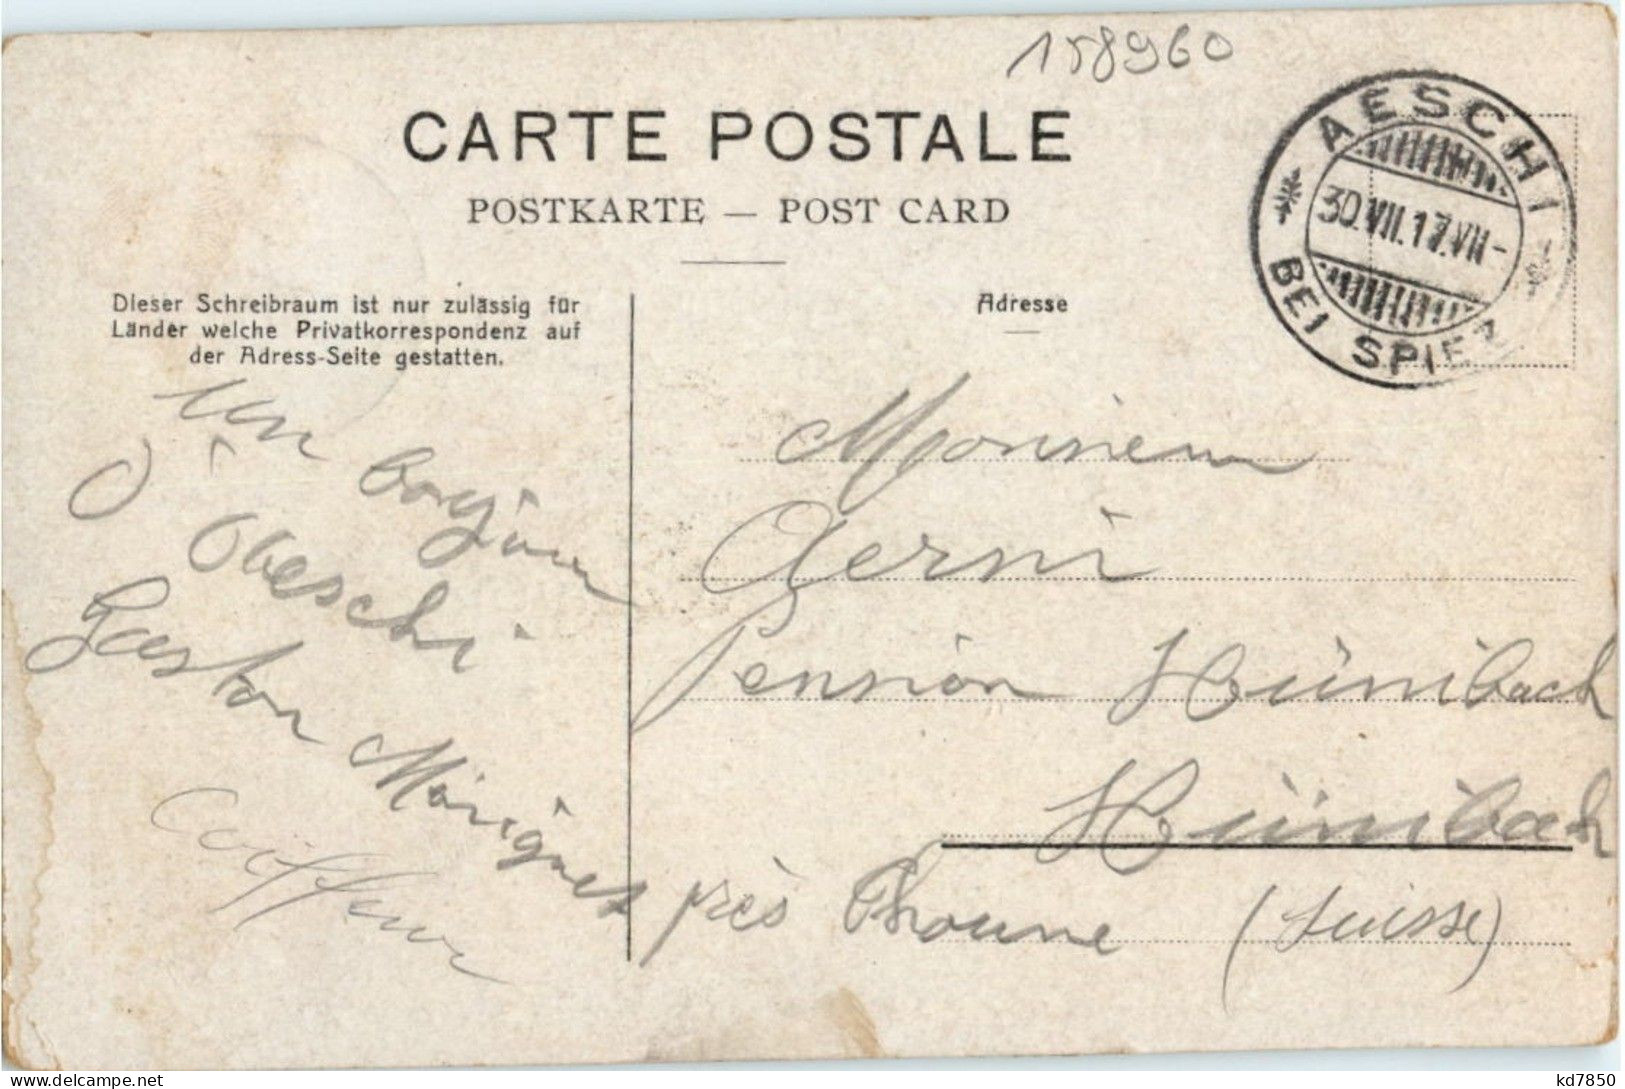 158960
CARTE POSTALE
POSTKARTE — POST CARD
AESCHI
30.VII.17.VII-
BEI SPIEZ
Dieser Schreibraum ist nur zulässig für
Länder welche Privatkorrespondenz auf
der Adress-Seite gestatten.
Adresse
Un bonjour
d'
Aeschi
Gaston
Coiffeur
Monsieur
Aerni
Pension Hünibach
Hünibach
près Thoune (Suisse)
kd7850